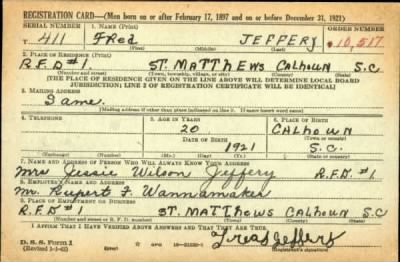 REGISTRATION CARD—(Men born on or after February 17, 1897 and on or before December 31, 1921)
SERIAL NUMBER 1. NAME (Print) ORDER NUMBER
T 411 Fred JEFFERY 10,517
(First) (Middle) (Last)
2. PLACE OF RESIDENCE (Print)
R.F.D #1. ST. MATTHEWS CALHOUN S.C
(Number and street) (Town, township, village, or city) (County) (State)
[THE PLACE OF RESIDENCE GIVEN ON THE LINE ABOVE WILL DETERMINE LOCAL BOARD
JURISDICTION; LINE 2 OF REGISTRATION CERTIFICATE WILL BE IDENTICAL]
3. MAILING ADDRESS
Same.
[Mailing address if other than place indicated on line 2. If same insert word same]
4. TELEPHONE 5. AGE IN YEARS 6. PLACE OF BIRTH
20 CALHOUN
DATE OF BIRTH (Town or county)
1921 S.C.
(Exchange) (Number) (Mo.) (Day) (Yr.) (State or country)
7. NAME AND ADDRESS OF PERSON WHO WILL ALWAYS KNOW YOUR ADDRESS
Mrs Jessie Wilson Jeffery R.F.D. #1
8. EMPLOYER'S NAME AND ADDRESS
Mr. Rupert F. Wannamaker
9. PLACE OF EMPLOYMENT OR BUSINESS
R.F.D #1 ST. MATTHEWS CALHOUN S.C
(Number and street or R. F. D. number) (Town) (County) (State)
I AFFIRM THAT I HAVE VERIFIED ABOVE ANSWERS AND THAT THEY ARE TRUE.
D. S. S. Form 1
(Revised 1-1-42) (over) Fred Jeffery
(Registrant's signature)